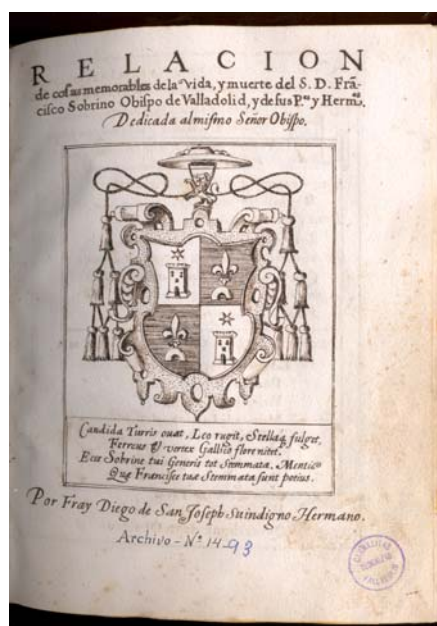 RELACION
de cosas memorables de la Vida, y muerte del S. D. Frã-
cisco Sobrino Obispo de Valladolid, y de sus P.es y Herm.os
Dedicada al mismo Señor Obispo.
Candida Turris ouat, Leo rugit, Stellaq; fulget,
Ferreus & vertex Gallico flore nitet.
Ecce Sobrine tui Generis tot Stemmata, Mentis
Quę Francisce tuę Stemmata sunt potius.
Por Fray Diego de San Joseph Su indigno Hermano.
Archivo - Nº 14-93